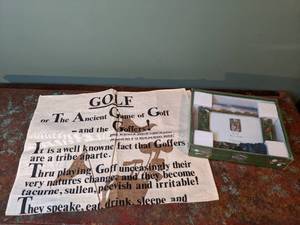 GOLF
or The Ancient Game of Goff
- and the Goffers!
It is a well known fact that Goffers
are a tribe aparte.
Thru playing Goff unceasingly their
very natures change, and they become
tacurne, sullen, peevish and irritable!
They speake, eat, drink, sleepe and